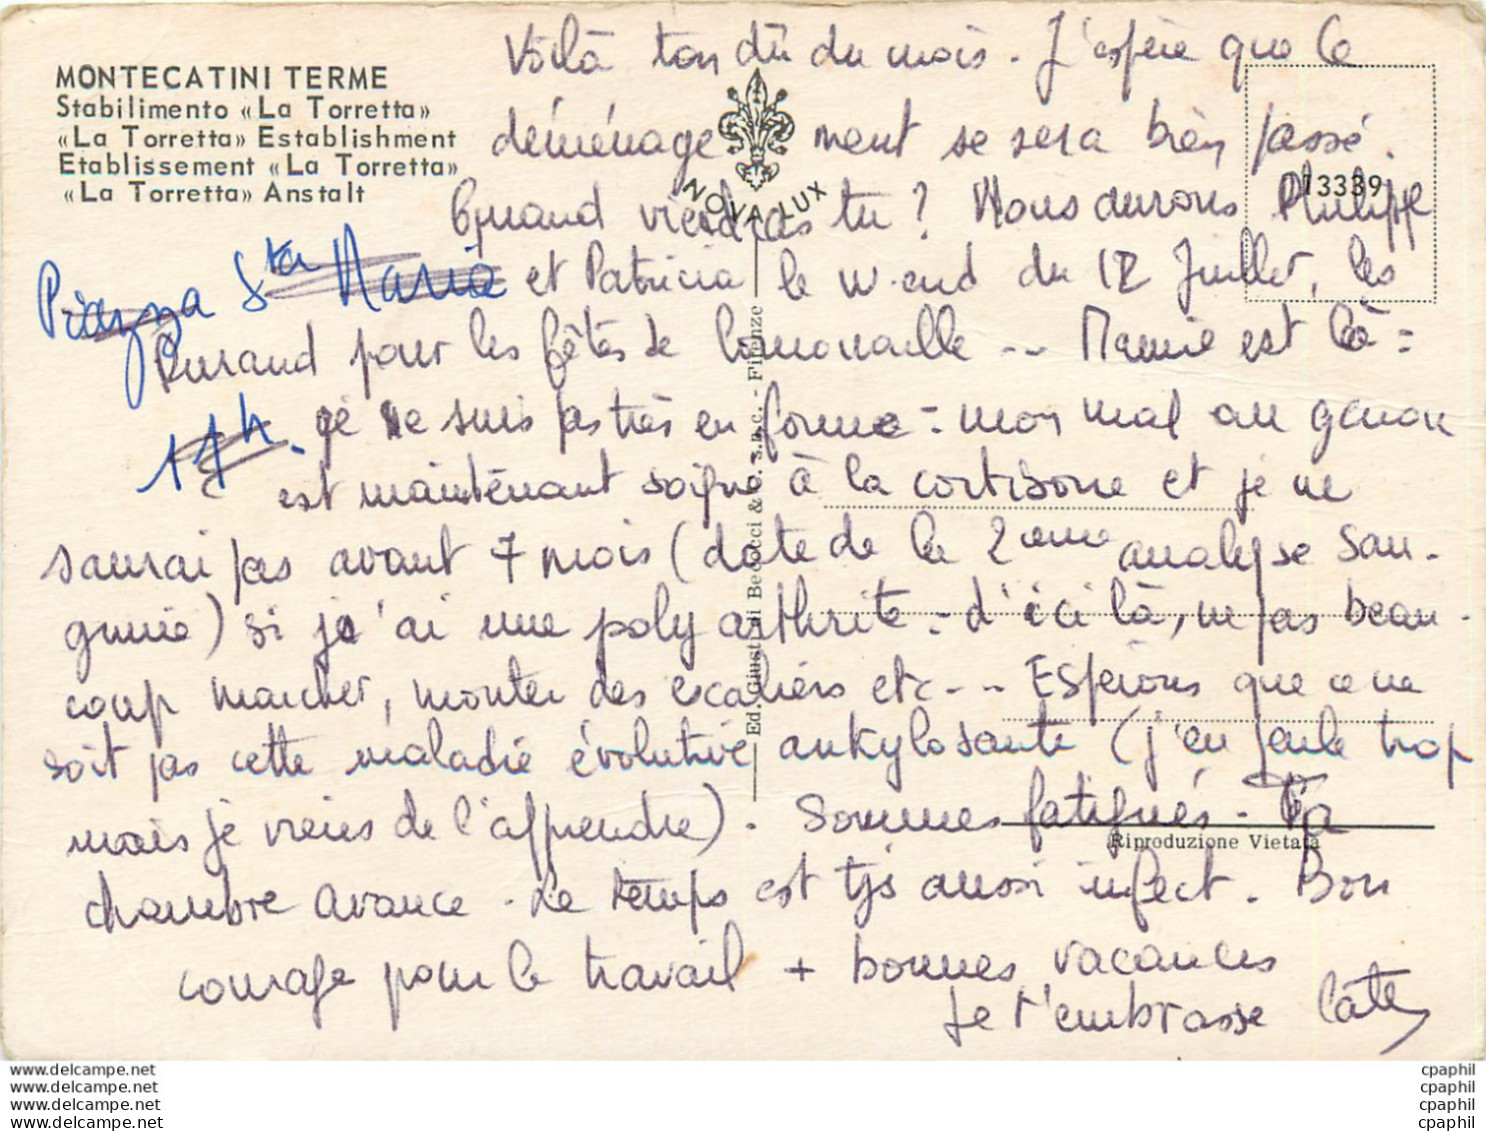 Voilà ton dû du mois. J'espère que le
MONTECATINI TERME
Stabilimento «La Torretta»
«La Torretta» Establishment
Etablissement «La Torretta»
«La Torretta» Anstalt
déménagement se sera bien passé.
NOVA LUX
13339
Quand viendras tu ? Nous aurons Philippe
Piazza Sta Maria
et Patricia le w.end du 12 Juillet, les
Durand pour les fêtes de Cornouaille -- Mamie est là =
11h.
je ne suis pas très en forme = mon mal au genou
est maintenant soigné à la cortisone et je ne
saurai pas avant 7 mois (date de la 2ème analyse san-
guine) si j'ai une poly arthrite - d'ici là, ne pas beau-
coup marcher, monter des escaliers etc -- Espérons que ce ne
soit pas cette maladie évolutive ankylosante (j'en parle trop
mais je viens de l'apprendre). Sommes fatigués - Ta
chambre avance. Le temps est tjs aussi infect. Bon
courage pour le travail + bonnes vacances
Je t'embrasse Cath
Ed. Giusti di Becocci & C. s.n.c. - Firenze
Riproduzione Vietata
www.delcampe.net
www.delcampe.net
www.delcampe.net
www.delcampe.net
cpaphil
cpaphil
cpaphil
cpaphil